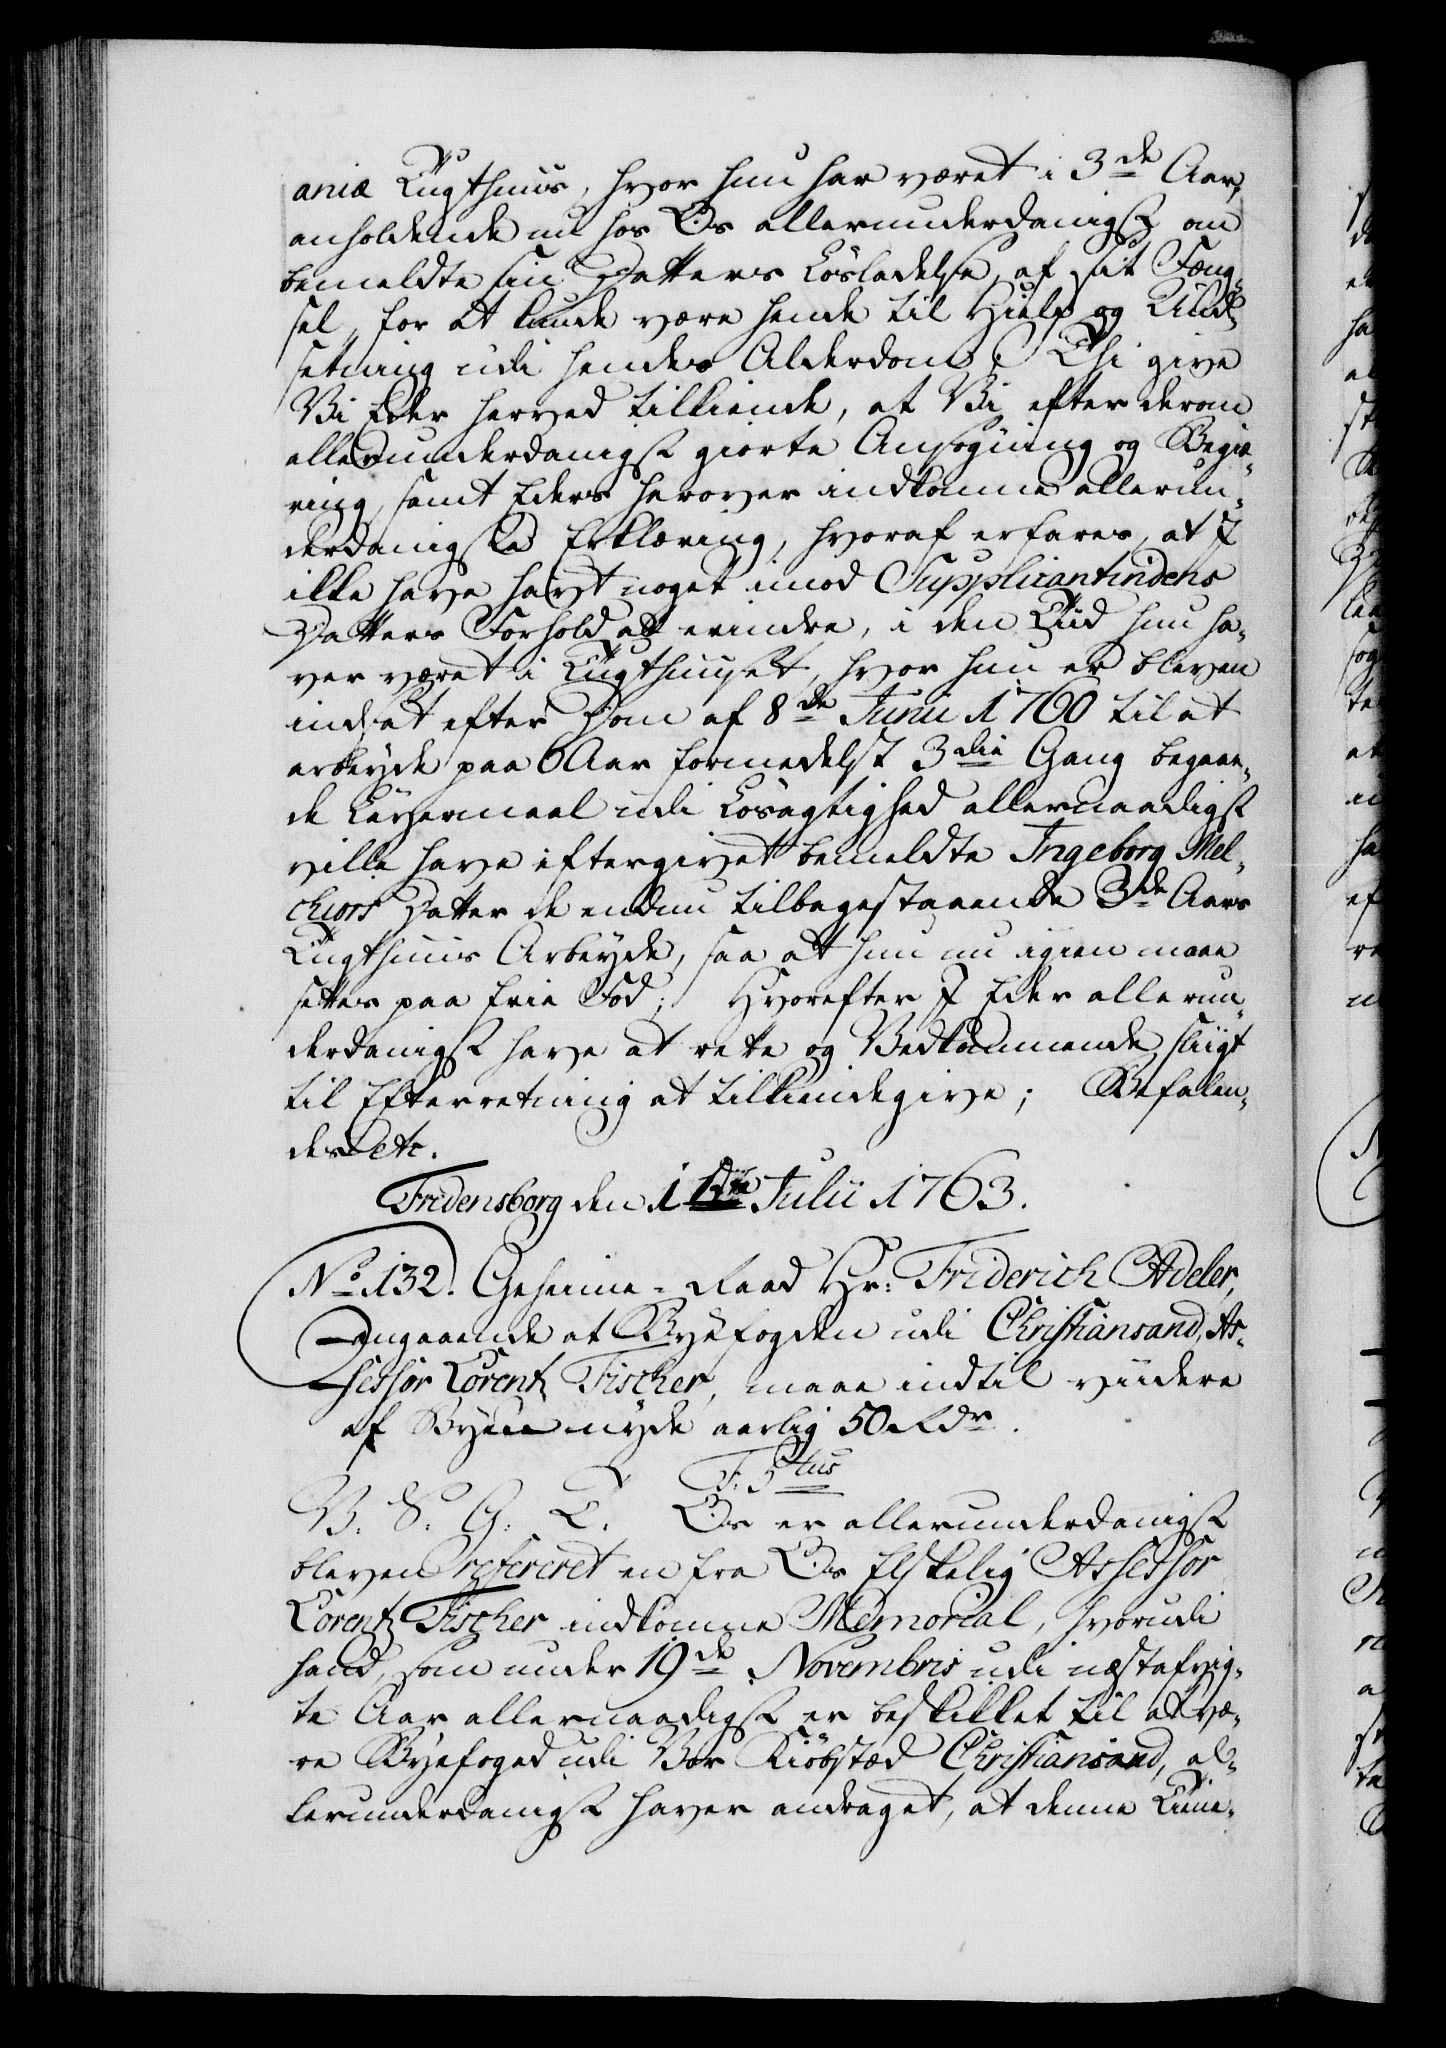 aniæ Tugthuus, hvor hun har været i 3de Aar,
anholdende nu hos Os allerunderdanigst om
bemeldte sin Datters Løsladelse, af sit Fæng-
sel, for at kunde være hende til Hielp og Und-
setning udi hendes Alderdom; Thi give
Vi Eder herved tilkiende, at Vi efter derom
allerunderdanigst giorte Ansøgning og Begiæ-
ring, samt Eders herover indkomne allerun-
derdanigste Erklæring, hvoraf erfares, at I
ikke have havt noget imod Supplicantindens
Datters Forhold at erindre, i den Tiid hun ha-
ver været i Tugthuuset, hvor hun er bleven
indsat efter Dom af 8de Junii 1760 til at
arbeyde paa 6 Aar formedelst 3die Gang begaae-
de Leyermaal udi Løsagtighed allernaadigst
ville have eftergivet bemeldte Ingeborg Mel-
chiors Datter de endnu tilbagestaaende 3de Aars
Tugthuus Arbeyde, saa at hun nu igien maae
settes paa frie Fod; Hvorefter I Eder allerun-
derdanigst have at rette og Vedkommende sligt
til Efterretning at tilkiendegive; Befalen-
des etc.
Fridensborg den 11te Julii 1763.
No 132. Geheime-Raad Hr: Friderich Adeler,
Angaaende at Byefogden udi Christiansand, As-
sessor Lorentz Fischer, maae indtil viidere
af Byen nyde aarlig 50 Rdr.
F: 5tus
V. S. G. T. Os er allerunderdanigst
bleven refereret en fra Os Elskelig Assessor
Lorentz Fischer indkomne Memorial, hvorudi
hand, som under 19de Novembris udi næstafvig-
te Aar allernaadigst er beskikket til at væ-
re Byefoged udi Vor Kiøbstæd Christiansand, al-
lerunderdanigst haver andraget, at denne Tiene-